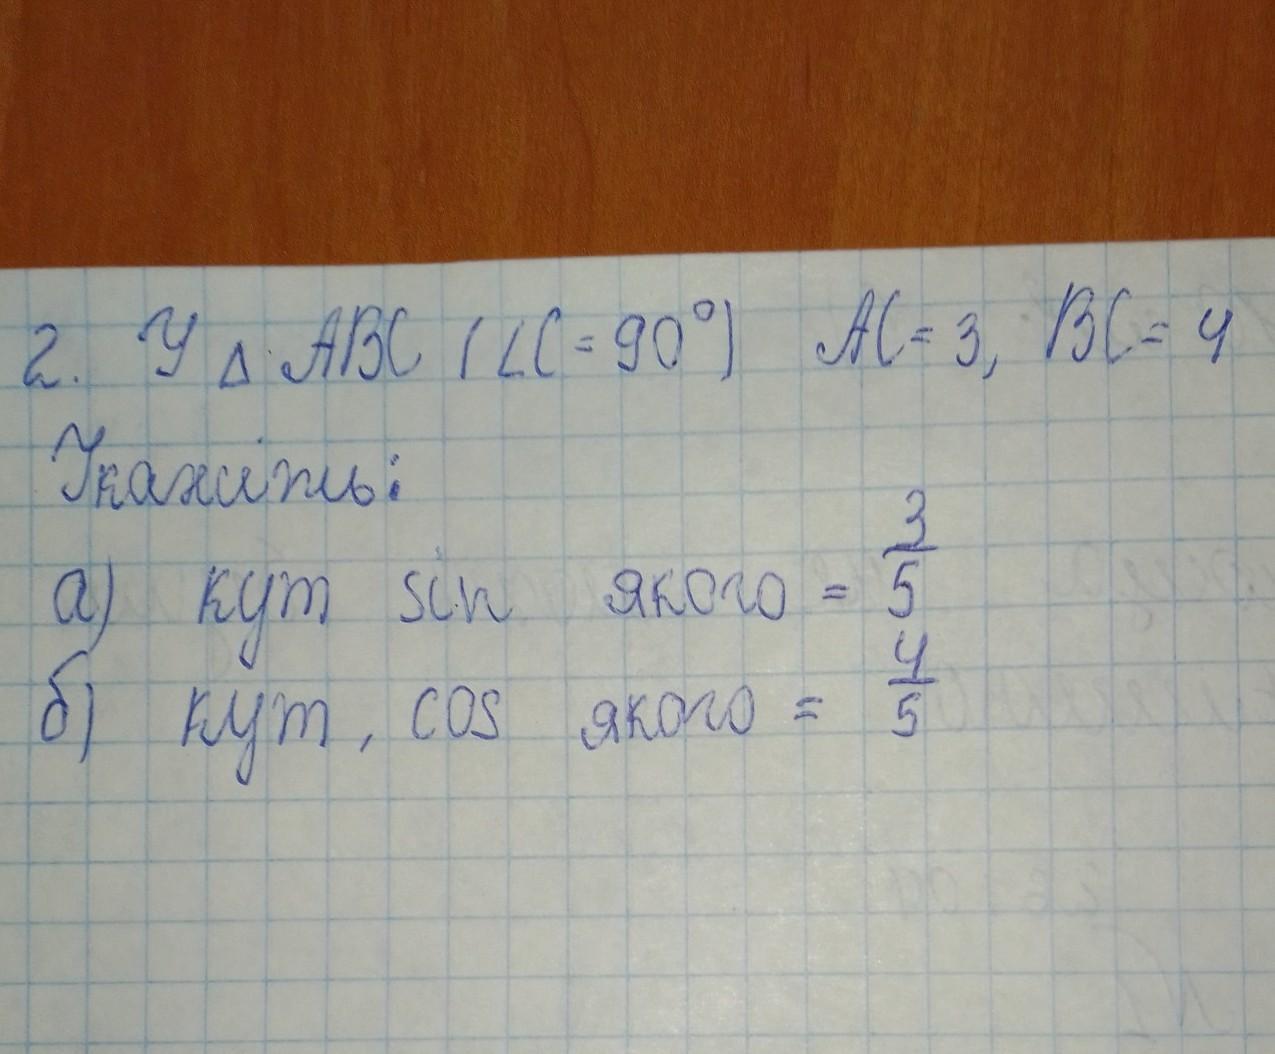 2. У △ ABC (∠C = 90°) AC = 3, BC = 4
Укажіть:
а) кут sin якого = 3/5
б) кут, cos якого = 4/5